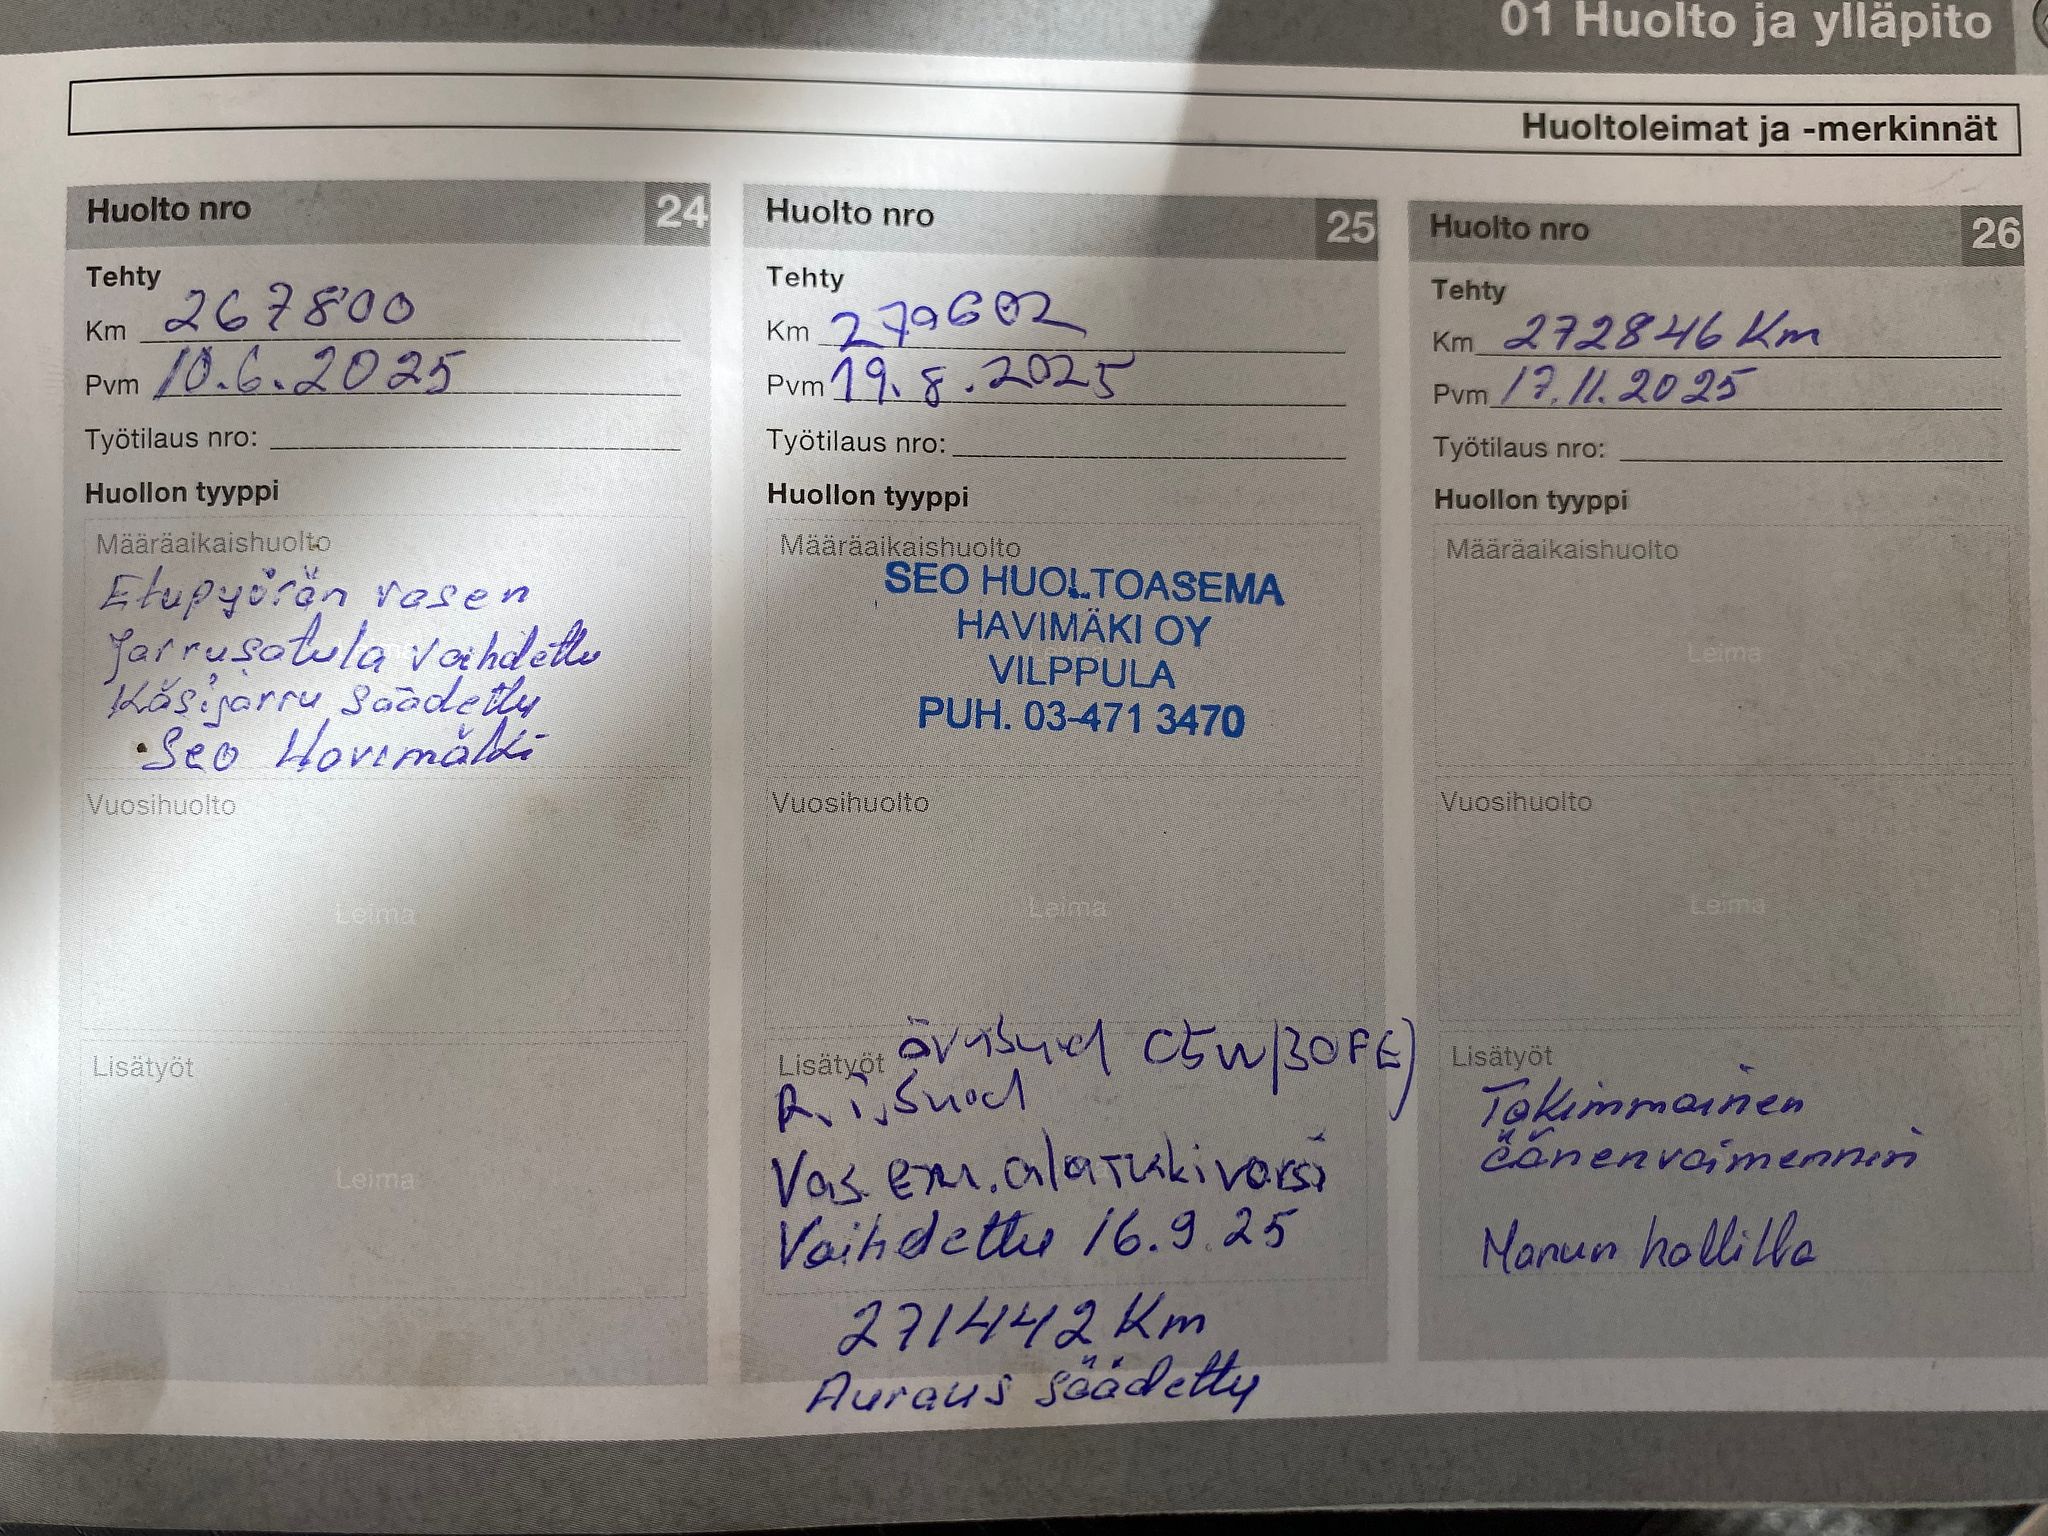 01 Huolto ja ylläpito
Huoltoleimat ja -merkinnät
Huolto nro 24
Tehty
Km 267800
Pvm 10.6.2025
Työtilaus nro:
Huollon tyyppi
Määräaikaishuolto
Etupyörän vasen
Jarrusatula vaihdettu
Käsijarru säädetty
Seo Havimäki
Vuosihuolto
Leima
Lisätyöt
Leima
Huolto nro 25
Tehty
Km 270602
Pvm 19.8.2025
Työtilaus nro:
Huollon tyyppi
Määräaikaishuolto
SEO HUOLTOASEMA
HAVIMÄKI OY
VILPPULA
PUH. 03-471 3470
Vuosihuolto
Leima
Lisätyöt C5W/30FE)
R.i.Suod
Vas. etu. alatukivarsi
Vaihdettu 16.9.25
271442 Km
Auraus säädetty
Huolto nro 26
Tehty
Km 272846 Km
Pvm 17.11.2025
Työtilaus nro:
Huollon tyyppi
Määräaikaishuolto
Leima
Vuosihuolto
Leima
Lisätyöt
Takimmainen
äänenvaimennin
Manun hallilla